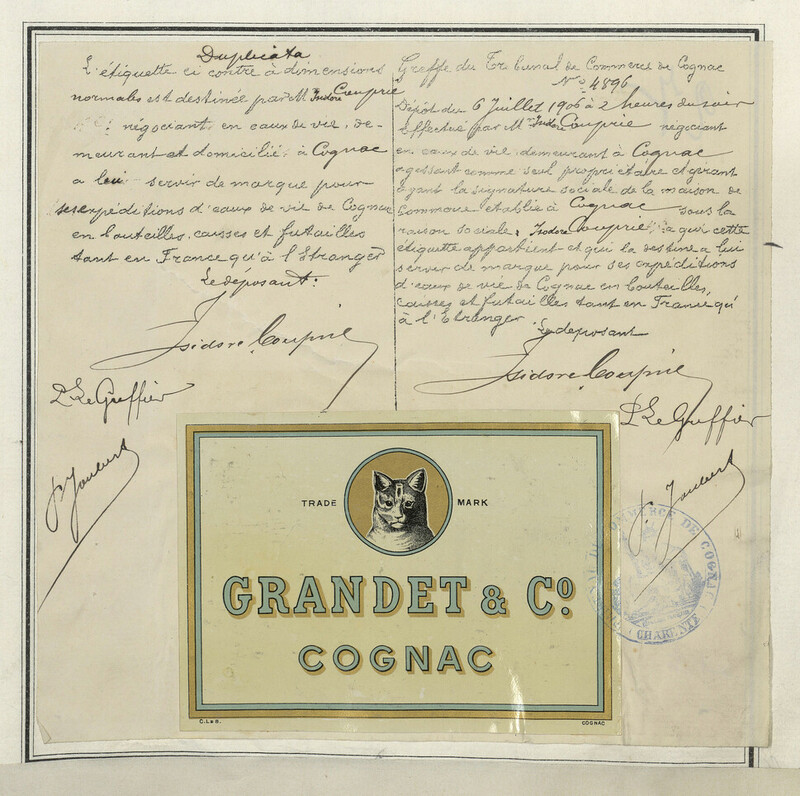 Duplicata
L'étiquette ci contre à dimensions
normales est destinée par M Isidore Couprie
négociant en eaux de vie, de-
meurant et domicilié à Cognac
a lui servir de marque pour
ses expéditions d'eaux de vie de Cognac
en bouteilles, caisses et futailles
tant en France qu'à l'Etranger
Le déposant:
Isidore Couprie
P. Le Greffier
P. Joubert
Greffe du Tribunal de Commerce de Cognac
N° 4896
Dépôt du 6 Juillet 1906 à 2 heures du soir
Effectué par M Isidore Couprie négociant
en eaux de vie demeurant à Cognac
agissant comme seul propriétaire et gérant
ayant la signature sociale de la maison de
Commerce établie à Cognac sous la
raison sociale: Isidore Couprie à qui cette
étiquette appartient et qui la destine a lui
servir de marque pour ses expéditions
d'eaux de vie de Cognac en bouteilles,
caisses et futailles tant en France qu'
à l'Etranger
Le déposant
Isidore Couprie
P. Le Greffier
P. Joubert
TRADE MARK
GRANDET & Cº.
COGNAC
C.L & B.
COGNAC
COMMERCE DE COGNAC
CHARENTE